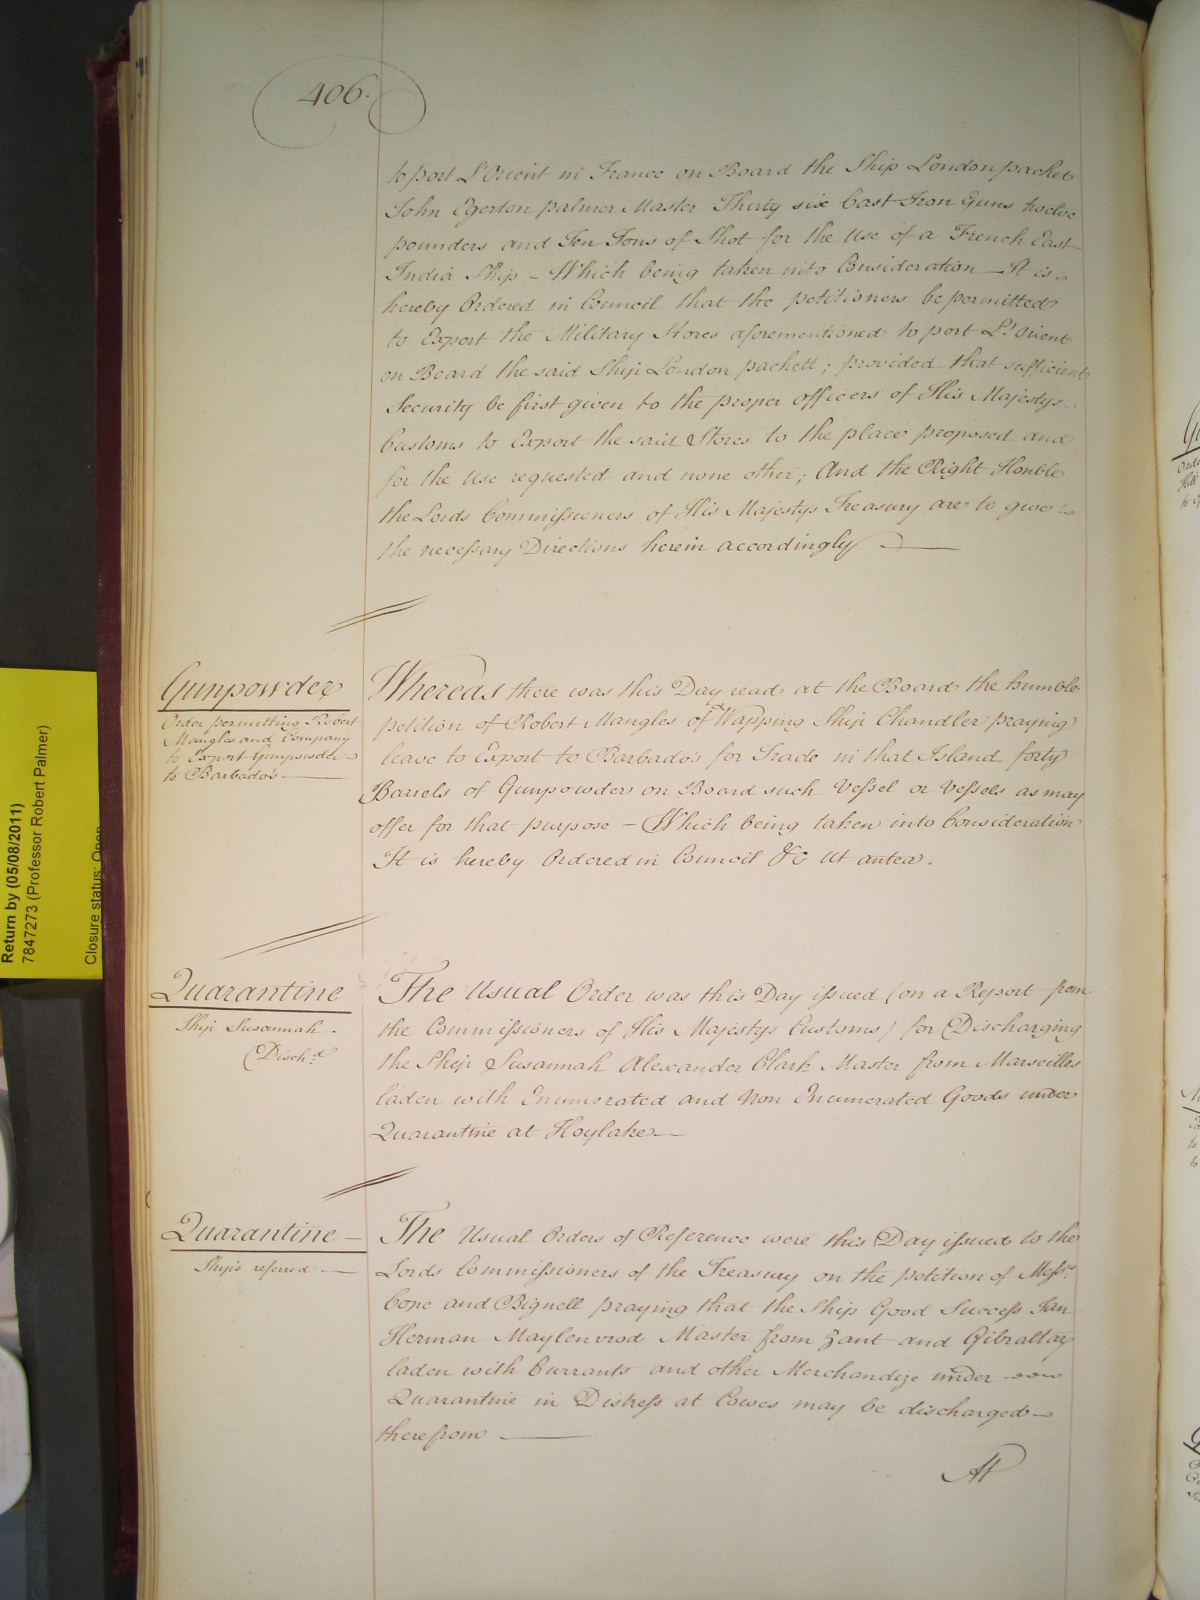 406.
to port L'Orient in France on Board the Ship London packet
John Egerton palmer Master Thirty six Cast Iron Guns twelve
pounders and Ten Tons of Shot for the Use of a French East
India Ship – Which being taken into Consideration – It is
hereby Ordered in Council that the petitioners be permitted
to Export the Military Stores aforementioned to port L'Orient
on Board the said Ship London packett; provided that sufficient
Security be first given to the proper officers of His Majestys
Customs to Export the said Stores to the place proposed and
for the Use requested and none other; And the Right Honble
the Lords Commissioners of His Majestys Treasury are to give
the necessary Directions herein accordingly
Gunpowder
Order permitting Robert
Mangles and Company
to Export Gunpowder
to Barbados
Whereas there was this Day read at the Board the humble
petition of Robert Mangles of Wapping Ship Chandler praying
leave to Export to Barbados for Trade in that Island forty
Barrels of Gunpowder on Board such Vessel or Vessels as may
offer for that purpose – Which being taken into Consideration
It is hereby Ordered in Council &c Ut antea.
Quarantine
Ship Susannah.
Disch.d
The Usual Order was this Day issued (on a Report from
the Commissioners of His Majestys Customs) for Discharging
the Ship Susannah Alexander Clark Master from Marseilles
laden with Enumerated and Non Enumerated Goods under
Quarantine at Hoylake
Quarantine –
Ships referred
The Usual Orders of Reference were this Day issued to the
Lords Commissioners of the Treasury on the petition of Mess.rs
Cope and Bignell praying that the Ship Good Success Jan
Herman Maylenvrod Master from Zant and Gibraltar
laden with Currants and other Merchandize under
Quarantine in Distress at Cowes may be discharged
therefrom
At
Return by (05/08/2011)
7847273 (Professor Robert Palmer)
Closure status: Open